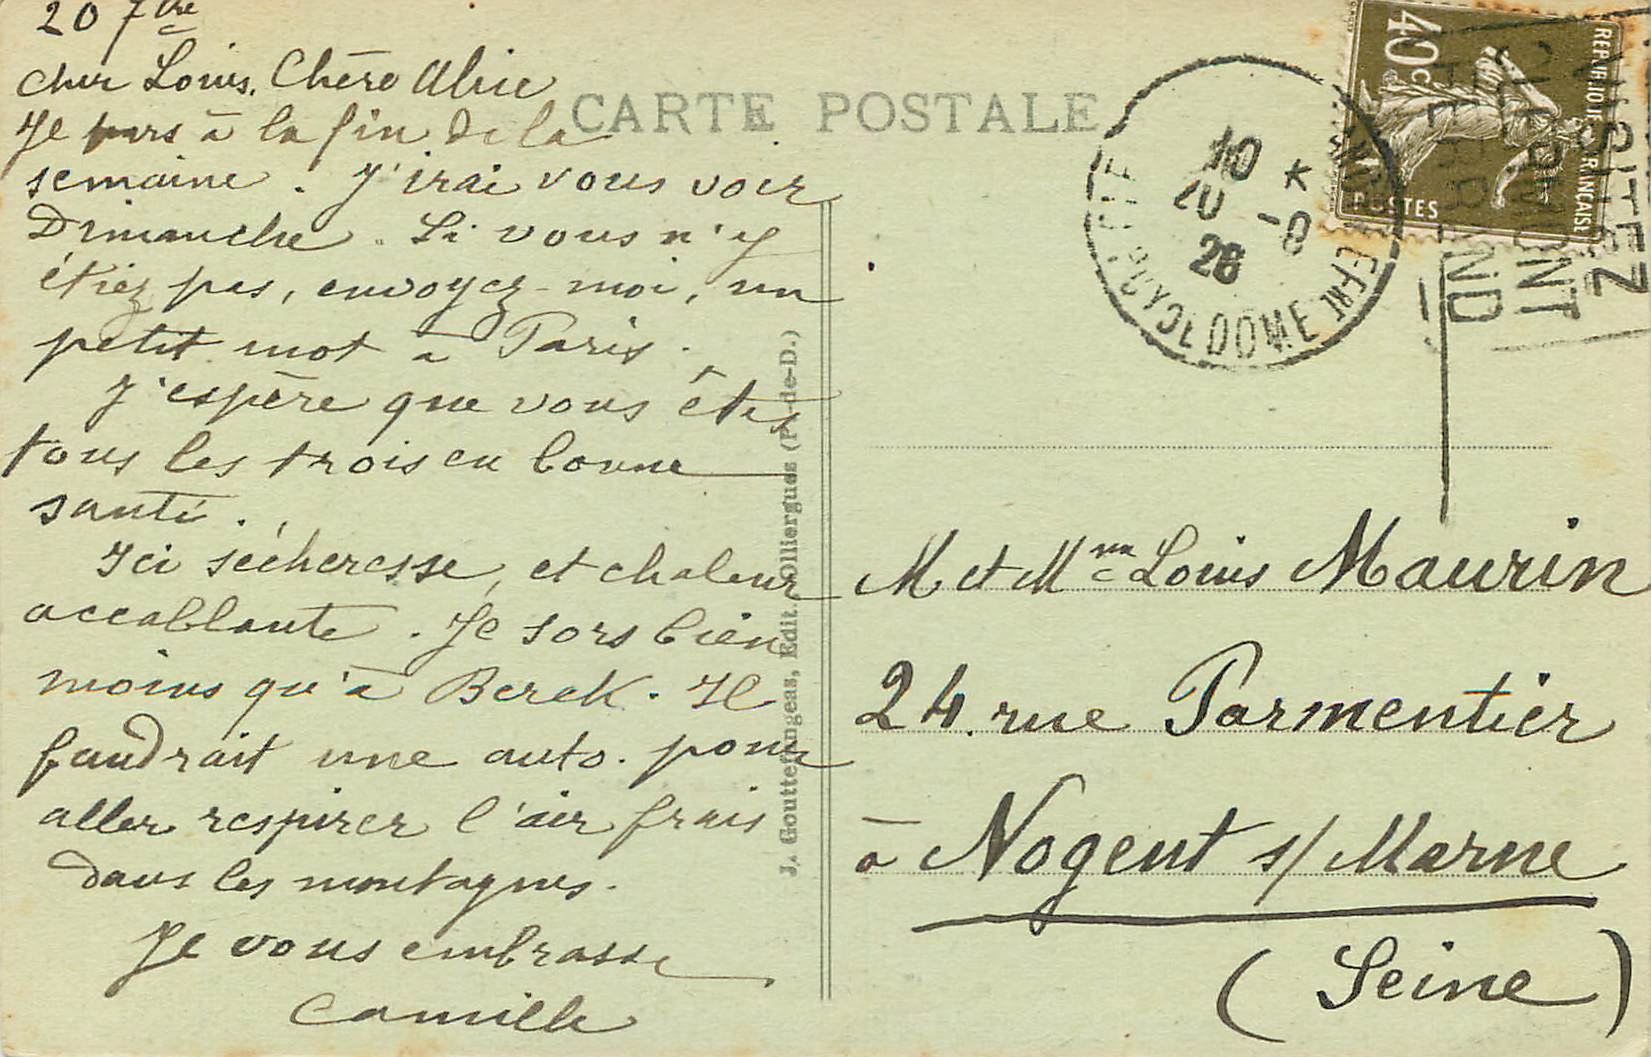 20 7bre
Cher Louis, Chère Alice
Je pars à la fin de la
semaine. J'irai vous voir
Dimanche. Si vous n'y
étiez pas, envoyez-moi, un
petit mot à Paris.
J'espère que vous êtes
tous les trois en bonne
santé.
Ici sécheresse, et chaleur
accablante. Je sors bien
moins qu'à Berck. Il
faudrait une auto. pour
aller respirer l'air frais
dans les montagnes.
Je vous embrasse
Camille
CARTE POSTALE
J. Gouttefangeas, Edit. Olliergues (P.-de-D.)
10 *
20 -9
26
PUY DE DOME
40c
REPUBLIQUE FRANÇAISE
POSTES
VISITEZ
CLERMONT
FERRAND
M et Mme Louis Maurin
24. rue Parmentier
à Nogent s/ Marne
(Seine)